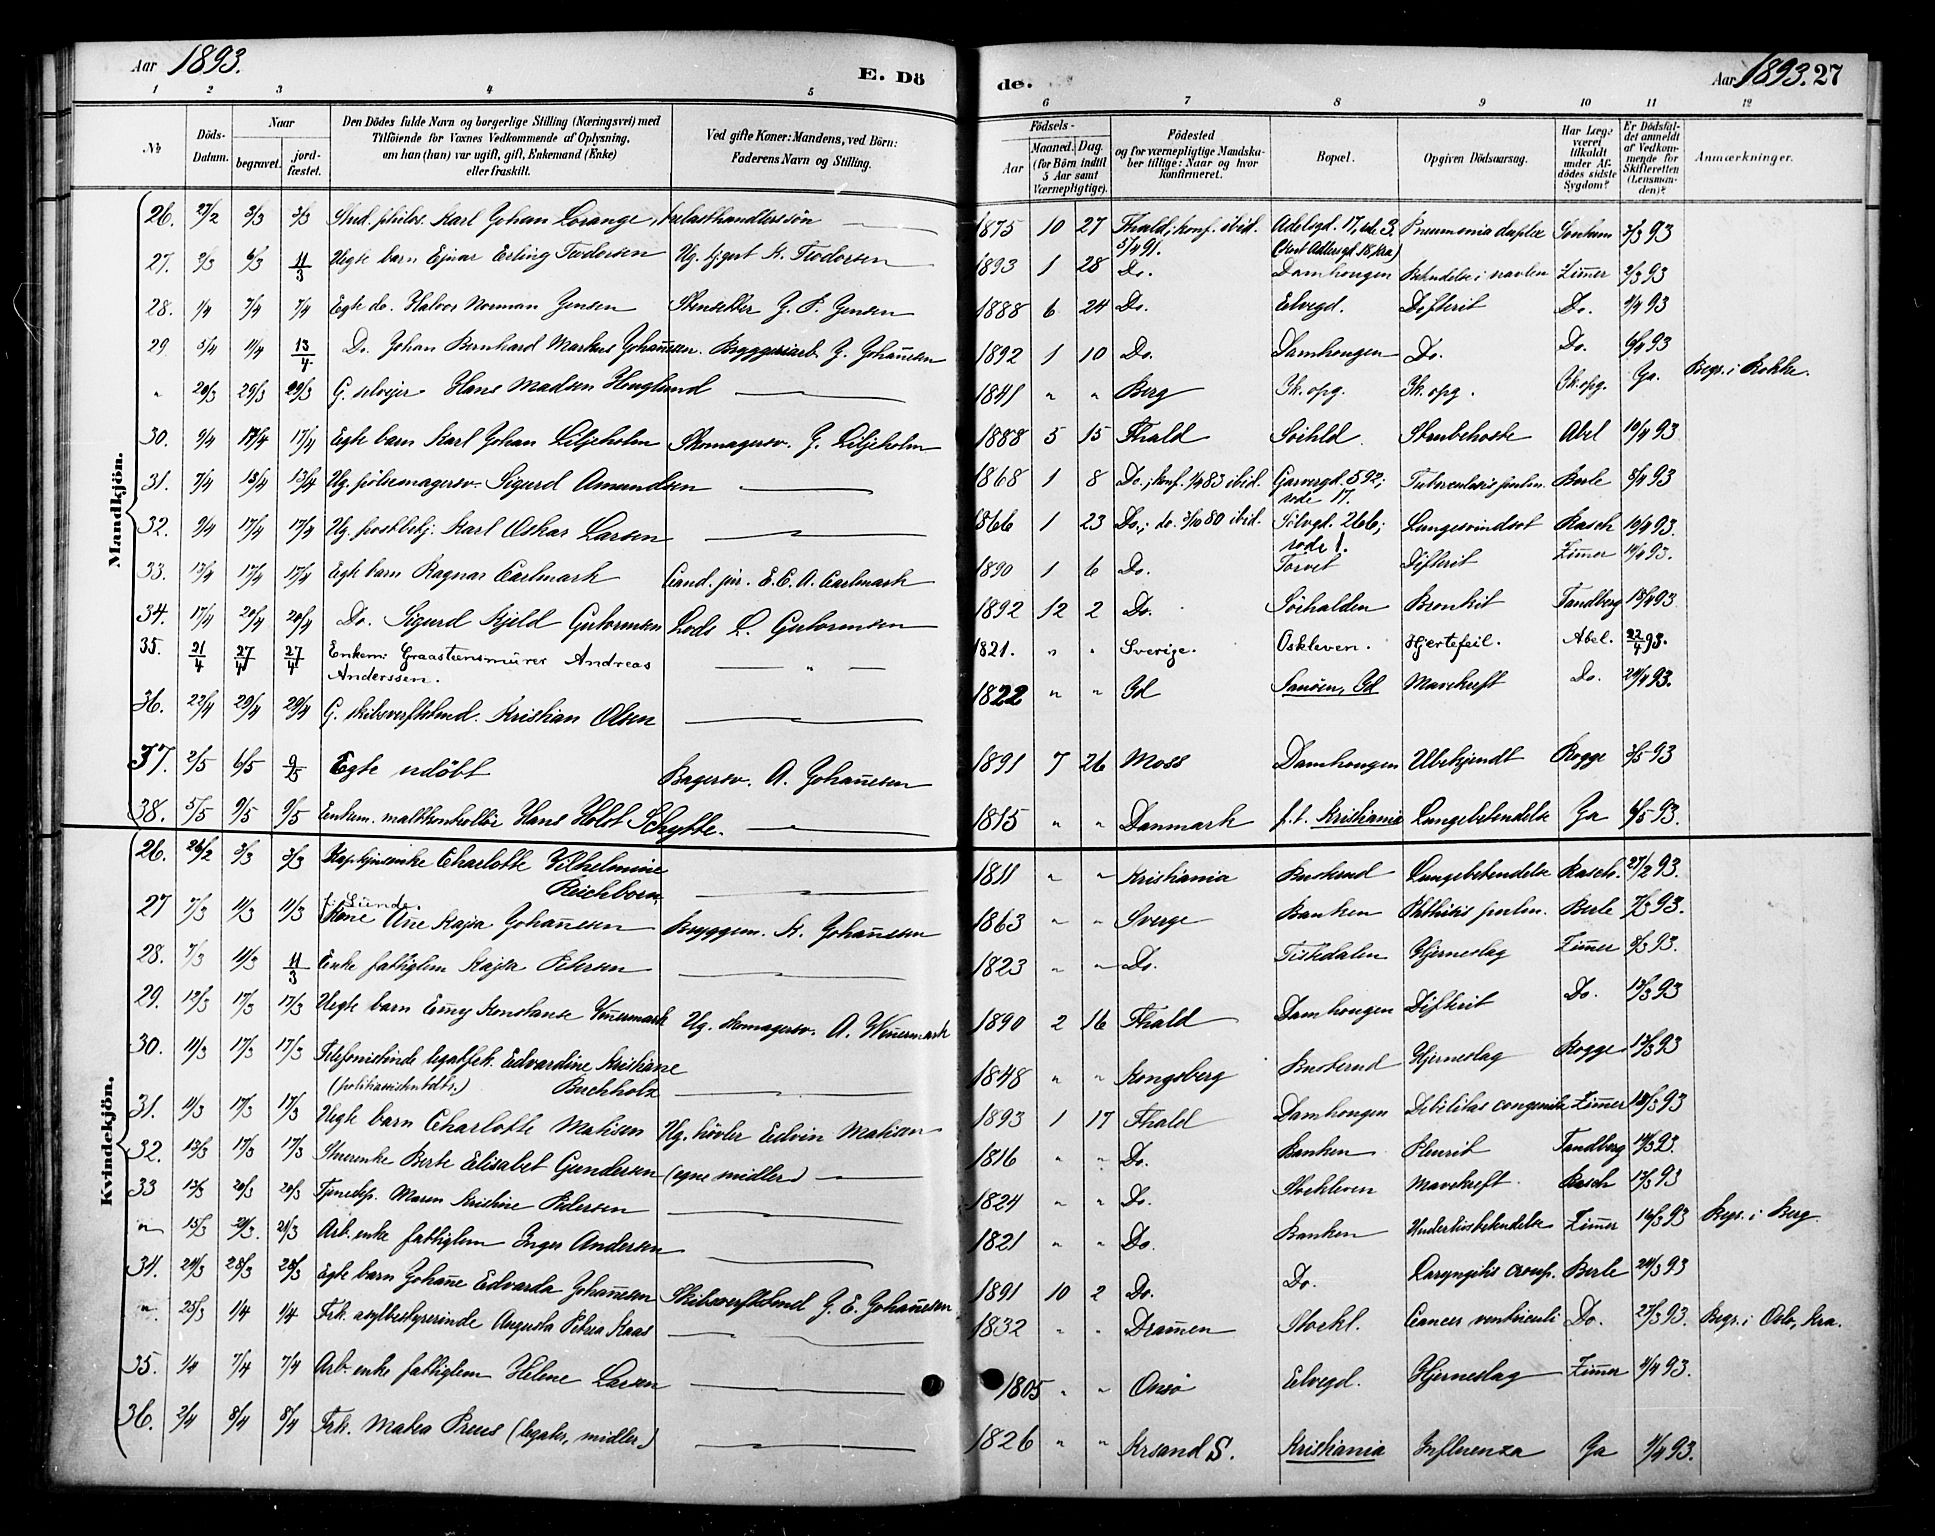 Aar 1893. E. Dö de. Aar 1893. 27
1 2 3 4 5 6 7 8 9 10 11 12
№ Döds-Datum. Naar begravet. jordfæstet. Den Dödes fulde Navn og borgerlige Stilling (Næringsvei) med Tilföiende for Voxnes Vedkommende af Oplysning, om han (hun) var ugift, gift, Enkemand (Enke) eller fraskilt. Ved gifte Koner: Mandens, ved Börn: Faderens Navn og Stilling. Födsels- Aar Maaned. Dag. (for Börn indtil 5 Aar samt Værnepligtige). Födested og for værnepligtige Mandskaber tillige: Naar og hvor konfirmeret. Bopæl. Opgiven Dödsaarsag. Har Læge været tilkaldt under Afdödes sidste Sygdom? Er Dödsfaldet anmeldt af Vedkommende for Skifteretten (Lensmanden)? Anmærkninger.
Mandkjön.
26. 27/2 3/3 3/3 Stud. philos. Karl Johan Lorange, trelasthandlerssön 1875 10 27 Fhald; konf. ibid. 5/4 91. Adelsgd. 17, rode 3. Pneumonia duplex 3/3 93
27. 2/3 6/3 11/3 Uegte barn Ejnar Erling Teodorsen Ug. K. Teodorsen 1893 1 28 Do. Damhougen Betændelse i navlen Zimer 2/3 93
28. 1/4 7/4 7/4 Egte do. Halvor Norman Jensen Stenhekker J. P. Jensen 1888 6 24 Do. Elvegd. Difterit Do. 4/4 93
29 5/4 11/4 13/4 Do. Johan Bernhard Markus Johansen Bryggeriarb. J. Johansen 1892 1 10 Do. Damhougen Do. Do. 6/4 93
" 20/3 29/3 29/3 G. selvejer Hans Madsen Høglund 1841 " " Berg Ik. opg. Ik. opg. Ik. opg. Ja. Begr. i Rokke.
30. 9/4 17/4 17/4 Egte barn Karl Johan Liljeholm Skomagersv. J. Liljeholm 1888 5 15 Fhald Söihld. Strubehoste Abel 10/4 93
31. 7/4 13/4 13/4 Ug. pölsemagersv. Sigurd Amundsen 1868 1 8 Do.; konf. 1/4 83 ibid. Garvergd. 592; rode 17. Tuberculosis pulm. Berle 8/4 93
32. 9/4 17/4 17/4 Ug. postbetj. Karl Oskar Larsen 1866 1 23 Do.; do. 3/10 80 ibid. Sölvgd. 266; rode 1. Lungesvindsot Rasch 10/4 93.
33. 13/4 17/4 17/4 Egte barn Ragnar Carlmark Cand. jur. E. C. A. Carlmark 1890 1 6 Do. Torvet Difterit Zimer 14/4 93.
34. 17/4 20/4 20/4 Do. Sigurd Kjeld Gutormsen Lods L. Gutormsen 1892 12 2 Do. Söihalden Bronkit Tandberg 18/4 93
35. 21/4 27/4 27/4 Enkem: Graastensmürer Andreas Anderssen. 1821. " " Sverige. Oskleven. Hjertefeil. Abel. 22/4 93.
36. 23/4 29/4 29/4 G. skibsverftstmd. Kristian Olsen 1822 " " Id Sauöen, Id Mavekræft Do. 24/4 93.
37. 2/5 6/5 9/5 Egte udöbt Bagersv. A. Johansen 1891 7 26 Moss Damhougen Ubekjendt Rogge 3/5 93
38. 5/5 9/5 9/5 Enkem. maltkontrollör Hans Holst Schytte. 1815 " " Danmark f. t. Kristiania Lungebetændelse Ja 6/5 93.
Kvindekjön.
26. 26/2 3/3 3/3 Charlotte Vilhelmine Reichborn 1811 " " Kristiania Buskrud Lungebetændelse Rasch. 27/2 93.
27 7/3 11/3 11/3 f: Lünde. Kone Ane Kajsa Johansen Byggem. K. Johansen 1863 " " Sverge Banken Phthisis pulm. Berle 7/3 93.
28. 7/3 11/3 11/3 Enke fattiglem Kajsa Petersen 1823 " " Do. Tistedalen Hjerneslag Zimer 8/3 93.
29. 12/3 17/3 17/3 Uegte barn Emy Konstanse Venermark Ug. skomagersv. A. Wenermark 1890 2 16 Fhald Damhougen Difterit Do. 13/3 93
30. 11/3 17/3 17/3 Telefonistinde legatfrk. Edvardine Kristiane Buchholz 1848 " " Kongsberg Buskrud Hjerneslag Rogge 13/3 93
31. 11/3 17/3 17/3 Uegte barn Charlotte Matisen Ug. hövler Edvin Matisen 1893 1 17 Fhald Damhougen Debilitas congenita Zimer 13/3 93
32. 13/3 17/3 17/3 Stuerenke Berte Elisabet Gundersen (egne midler) 1816 " " Do. Banken Plevrit Tandberg 14/3 93.
33 12/3 20/3 20/3 Tjenestep. Maren Kristine Pedersen 1824 " " Do. Stokleven Mavekræft Rasch 13/3 93
" 15/3 21/3. 21/3 Arb. enke fattiglem Inger Andersen 1821 " " Do. Banken Underlivsbetændelse Zimer 16/3 93 Begr. i Berg.
34. 24/3 28/3 28/3 Egte barn Johane Edvarda Johansen Skibsverftstmd J. E. Johansen 1891 10 2 Do. Do. Laryngitis croup. Berle 24/3 93
" 25/3 1/4 1/4 Frk. asylbestyrerinde Augusta Petrea Kaas 1832 " " Dramen Stokl. Cancer ventriculi Do. 27/3 93. Begr. i Oslo, Kra.
35. 1/4 7/4 7/4 Arb. enke fattiglem Helene Larsen 1805 " " Onsö Elvegd. Hjerneslag Zimer 4/4 93.
36. 2/4 8/4 8/4 Frk. Matea Preus (legater, midler) 1826 " " Krsand S. Kristiania Influenza Ja 7/4 93.